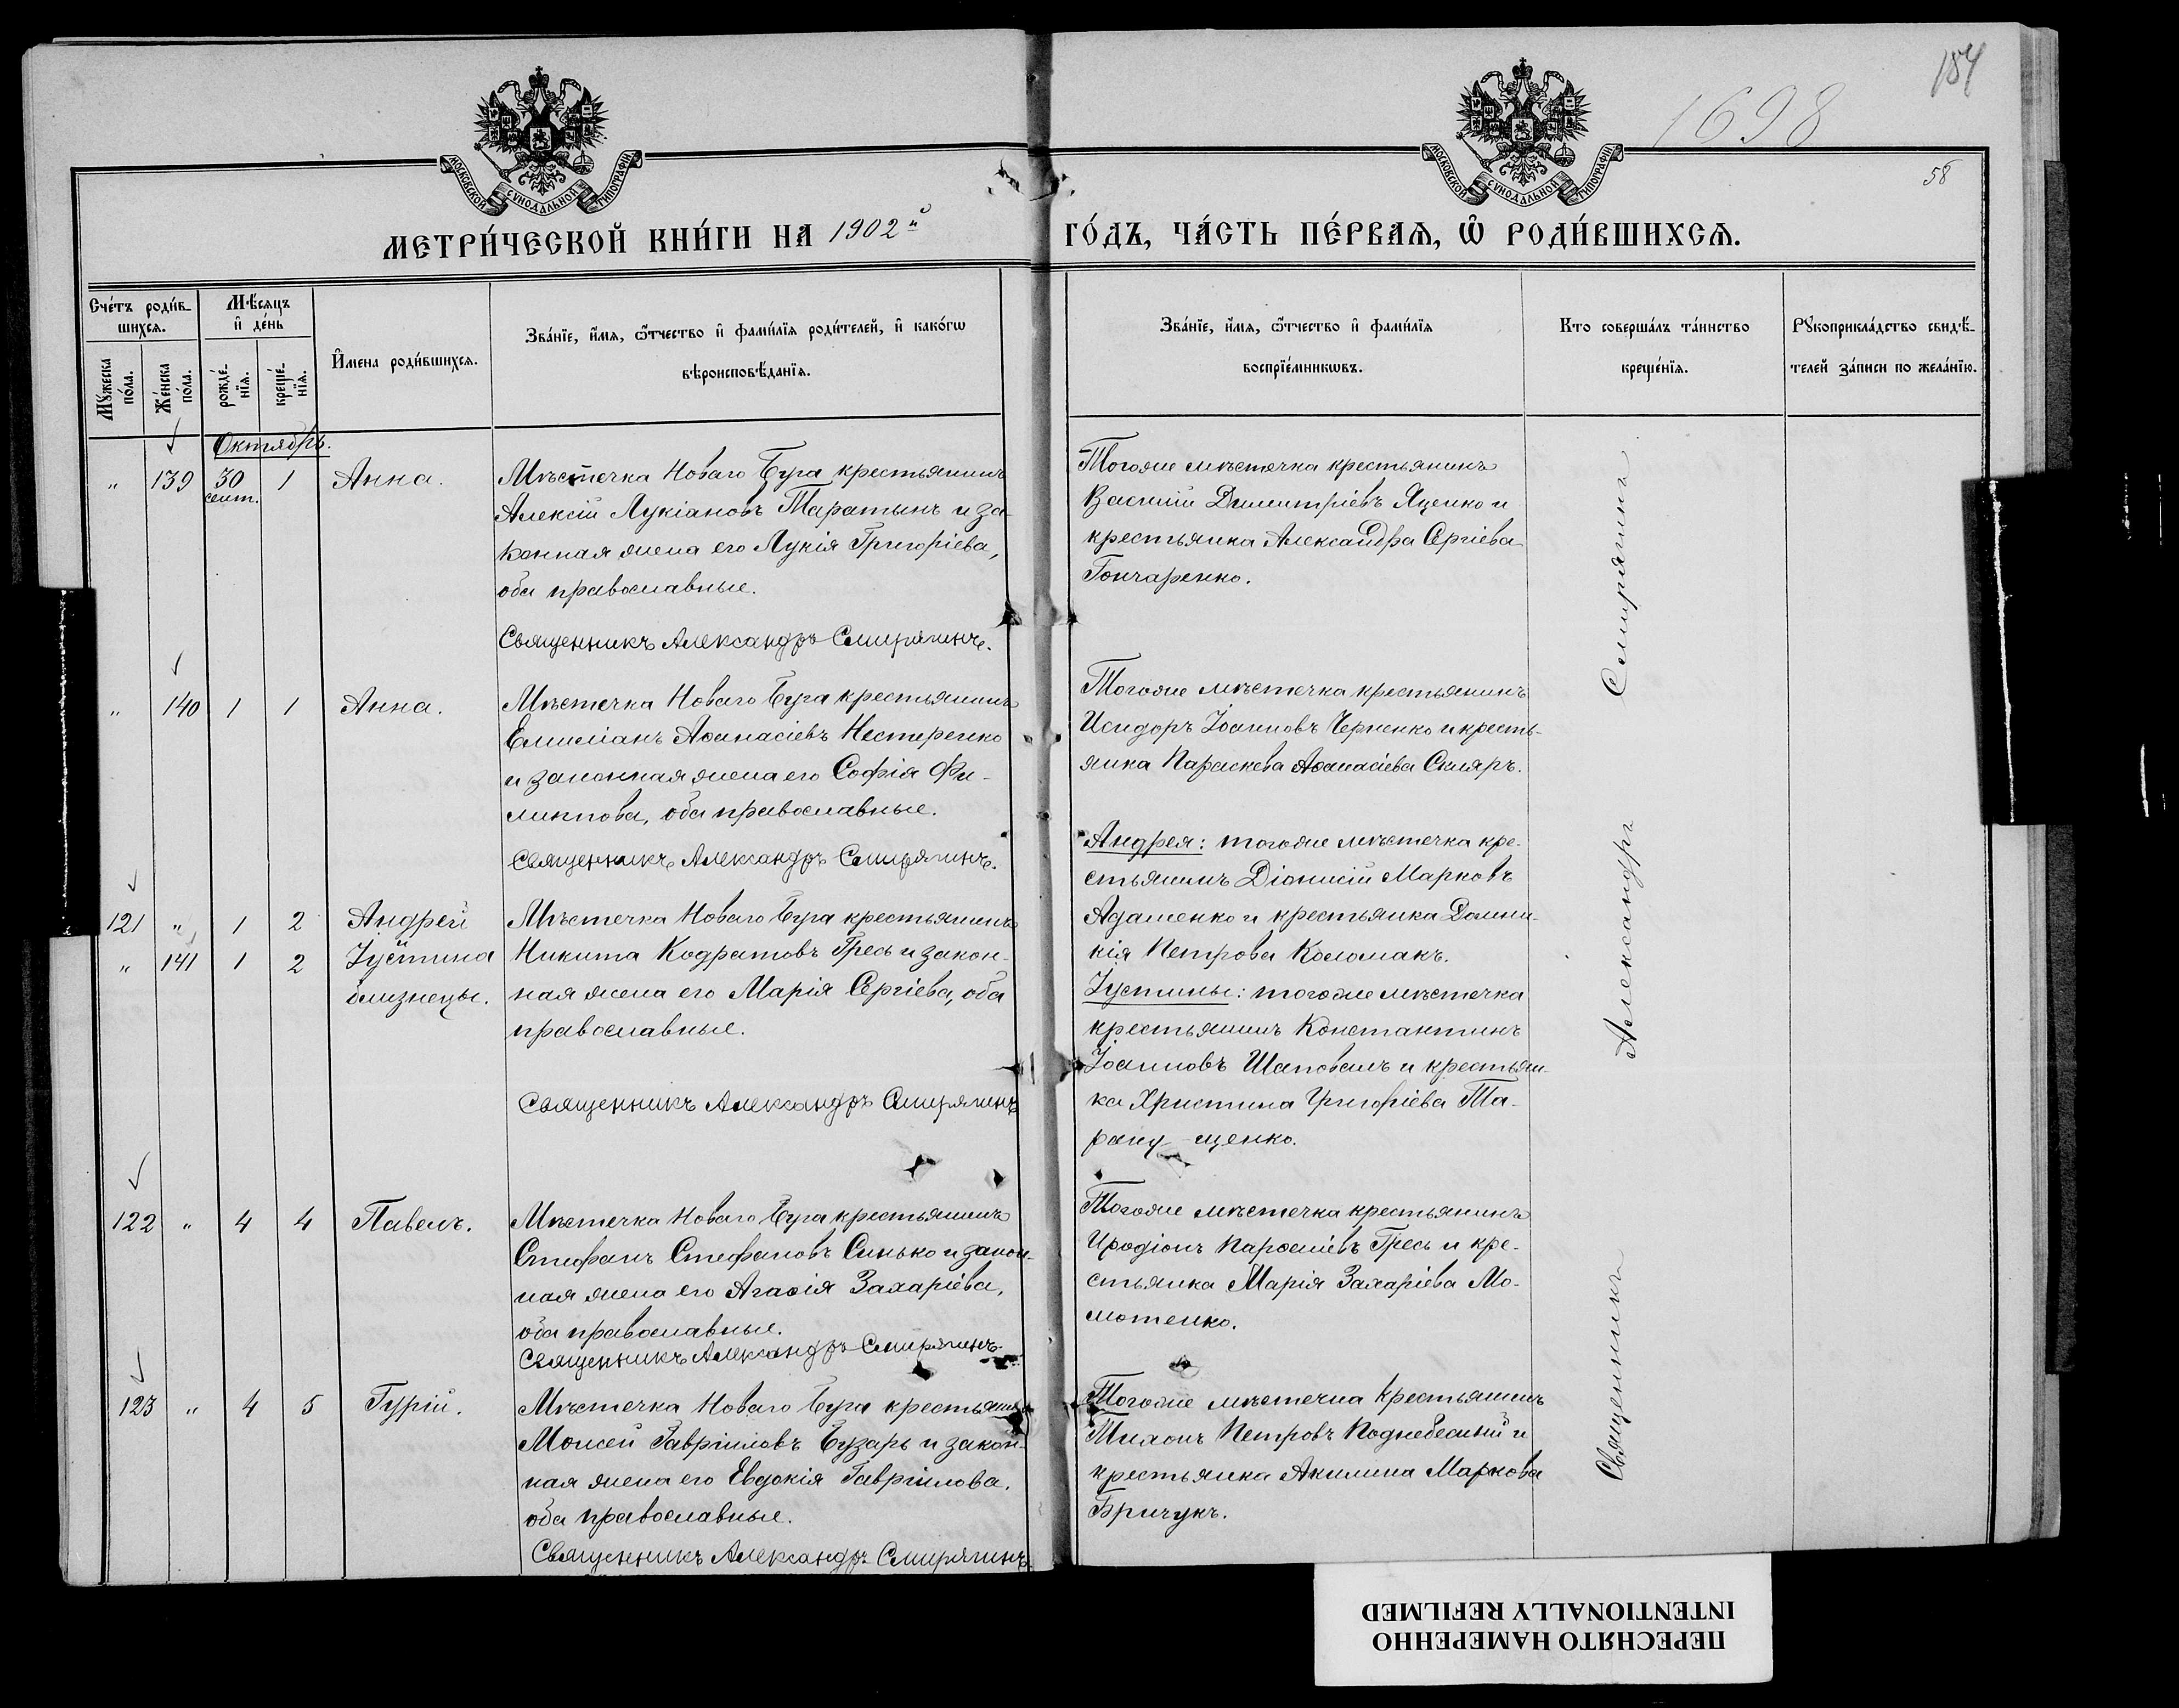 184
1698
58
МОСКОВСКОЙ СѴНОДАЛЬНОЙ ТИПОГРАФІИ
МОСКОВСКОЙ СѴНОДАЛЬНОЙ ТИПОГРАФІИ
МЕТРИ́ЧЕСКОЙ КНИ́ГИ НА 1902й
ГО́ДЪ, ЧА́СТЬ ПЕ́РВАѦ, Ѽ РОДИ́ВШИХСѦ.
Сче́тъ роди́в-
шихсѧ.
Мꙋ́жеска
по́ла.
Же́нска
по́ла.
Мѣ́сѧцъ
и҆ де́нь
рожде́-
нїѧ.
креще́-
нїѧ.
И҆мена роди́вшихсѧ.
Зва́нїе, и҆́мѧ, ѻ҆́тчество и҆ фами́лїѧ роди́телей, и҆ како́гѡ
вѣроисповѣ́данїѧ.
Зва́нїе, и҆́мѧ, ѻ҆́тчество и҆ фами́лїѧ
воспрїе́мникѡвъ.
Кто соверша́лъ та́инство
креще́нїѧ.
Рꙋкоприкла́дство свидѣ́-
телей за́писи по жела́нїю.
Октябрь.
" 139 30 сент. 1 Анна.
Мѣстечка Новаго Буга крестьянинъ
Алексій Лукіановъ Таратынъ и за-
конная жена его Лукія Григоріева,
оба православные.
Священникъ Александръ Смирягинъ.
Тогоже мѣстечка крестьянинъ
Василій Димитріевъ Яценко и
крестьянка Александра Сергіева
Гончаренко.
" 140 1 1 Анна.
Мѣстечка Новаго Буга крестьянинъ
Емиліанъ Аѳанасіевъ Нестеренко
и законная жена его Софія Фи-
липпова, оба православные.
Священникъ Александръ Смирягинъ.
Тогоже мѣстечка крестьянинъ
Исидоръ Іоанновъ Черненко и кресть-
янка Параскева Аѳанасіева Скляръ.
121 " 1 2 Андрей
" 141 1 2 Іустина
близнецы.
Мѣстечка Новаго Буга крестьянинъ
Никита Кодратовъ Гресь и закон-
ная жена его Марія Сергіева, оба
православные.
Священникъ Александръ Смирягинъ
Андрея: тогоже мѣстечка кре-
стьянинъ Діонисій Марковъ
Адаменко и крестьянка Домни-
кія Петрова Коломакъ.
Іустины: тогоже мѣстечка
крестьянинъ Константинъ
Іоанновъ Шаповалъ и крестьян-
ка Христина Григоріева Та-
рану-щенко.
122 " 4 4 Павелъ.
Мѣстечка Новаго Буга крестьянинъ
Стефанъ Стефановъ Синько и закон-
ная жена его Агаѳія Захаріева,
оба православные.
Священникъ Александръ Смирягинъ.
Тогоже мѣстечка крестьянинъ
Иродіонъ Парѳеніевъ Гресь и кре-
стьянка Марія Захаріева Мо-
лотенко.
123 " 4 5 Гурій.
Мѣстечка Новаго Буга крестьянинъ
Моисей Гавріиловъ Бузарь и закон-
ная жена его Евдокія Гавріилова,
оба православные.
Священникъ Александръ Смирягинъ.
Тогоже мѣстечка крестьянинъ
Тихонъ Петровъ Поднебесный и
крестьянка Акилина Маркова
Бричукъ.
Священникъ Александръ Смирягинъ
ПЕРЕСНЯТО НАМЕРЕННО
INTENTIONALLY REFILMED